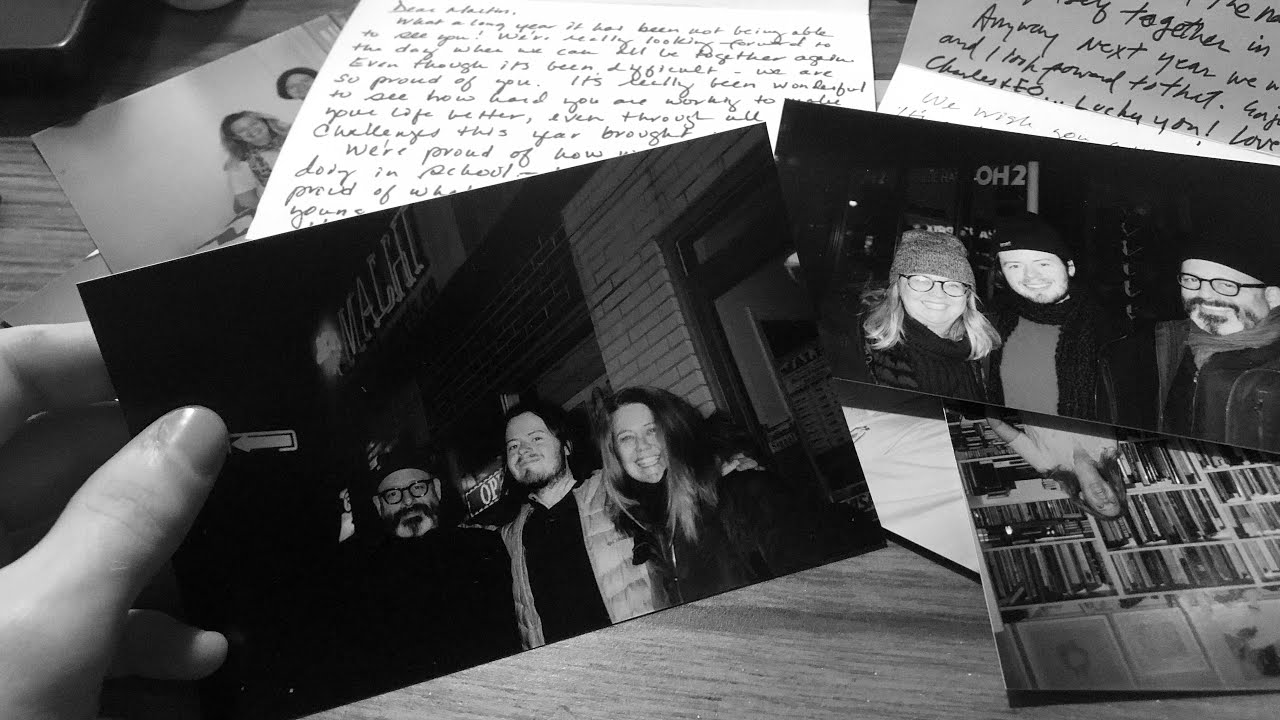 Dear Martin,
What a long year it has been not being able
to see you! We're really looking forward to
the day when we can all be together again.
Even though its been difficult - we are
so proud of you. It's really been wonderful
to see how hard you are working to make
your life better, even through all
challenges this year brought
We're proud of how
doing in school -
proud of
together in
Anyway Next year we
and I look forward to that.
Lucky you! Love
We wish you
OH2
MALHI
OP